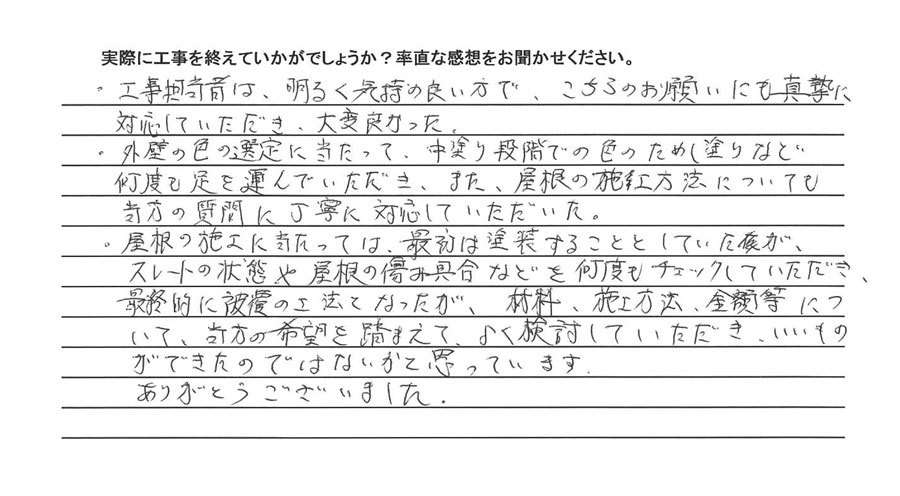 実際に工事を終えていかがでしょうか？率直な感想をお聞かせください。
・工事担当者は、明るく気持の良い方で、こちらのお願いにも真摯に
対応していただき、大変良かった。
・外壁の色の選定に当たって、中塗り段階での色のためし塗りなど
何度も足を運んでいただき、また、屋根の施工方法についても
当方の質問に丁寧に対応していただいた。
・屋根の施工に当たっては、最初は塗装することとしていたが、
スレートの状態や屋根の傷み具合などを何度もチェックしていただき、
最終的に被覆の工法となったが、材料、施工方法、金額等につ
いて、当方の希望を踏まえて、よく検討していただき、いいもの
ができたのではないかと思っています.
ありがとうございました.